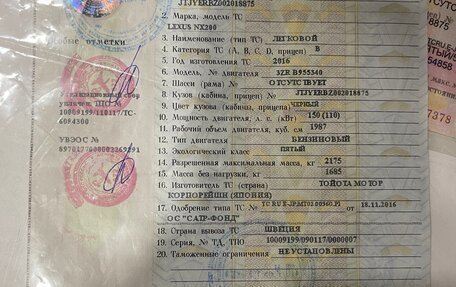 JTJYERBZ002018875
2. Марка, модель ТС
LEXUS NX200
3. Наименование (тип ТС) ЛЕГКОВОЙ
4. Категория ТС (А, В, С, D, прицеп) В
5. Год изготовления ТС 2016
6. Модель, № двигателя 3ZR B955340
7. Шасси (рама) № ОТСУТСТВУЕТ
8. Кузов (кабина, прицеп) № JTJYERBZ802018875
9. Цвет кузова (кабины, прицепа) ЧЕРНЫЙ
10. Мощность двигателя, л. с. (кВт) 150 (110)
11. Рабочий объем двигателя, куб. см 1987
12. Тип двигателя БЕНЗИНОВЫЙ
13. Экологический класс ПЯТЫЙ
14. Разрешенная максимальная масса, кг 2175
15. Масса без нагрузки, кг 1685
16. Изготовитель ТС (страна) ТОЙОТА МОТОР
КОРПОРЕЙШН (ЯПОНИЯ)
17. Одобрение типа ТС № от 18.11.2016
ОС "САТР-ФОНД"
18. Страна вывоза ТС ШВЕЦИЯ
19. Серия, № ТД, ТПО 10009199/090117/0000007
20. Таможенные ограничения НЕ УСТАНОВЛЕНЫ
Особые отметки
Утилизационный сбор
уплачен. ТПО №
10009199/110117/ТС-
6094300
УВЭОС №
7378